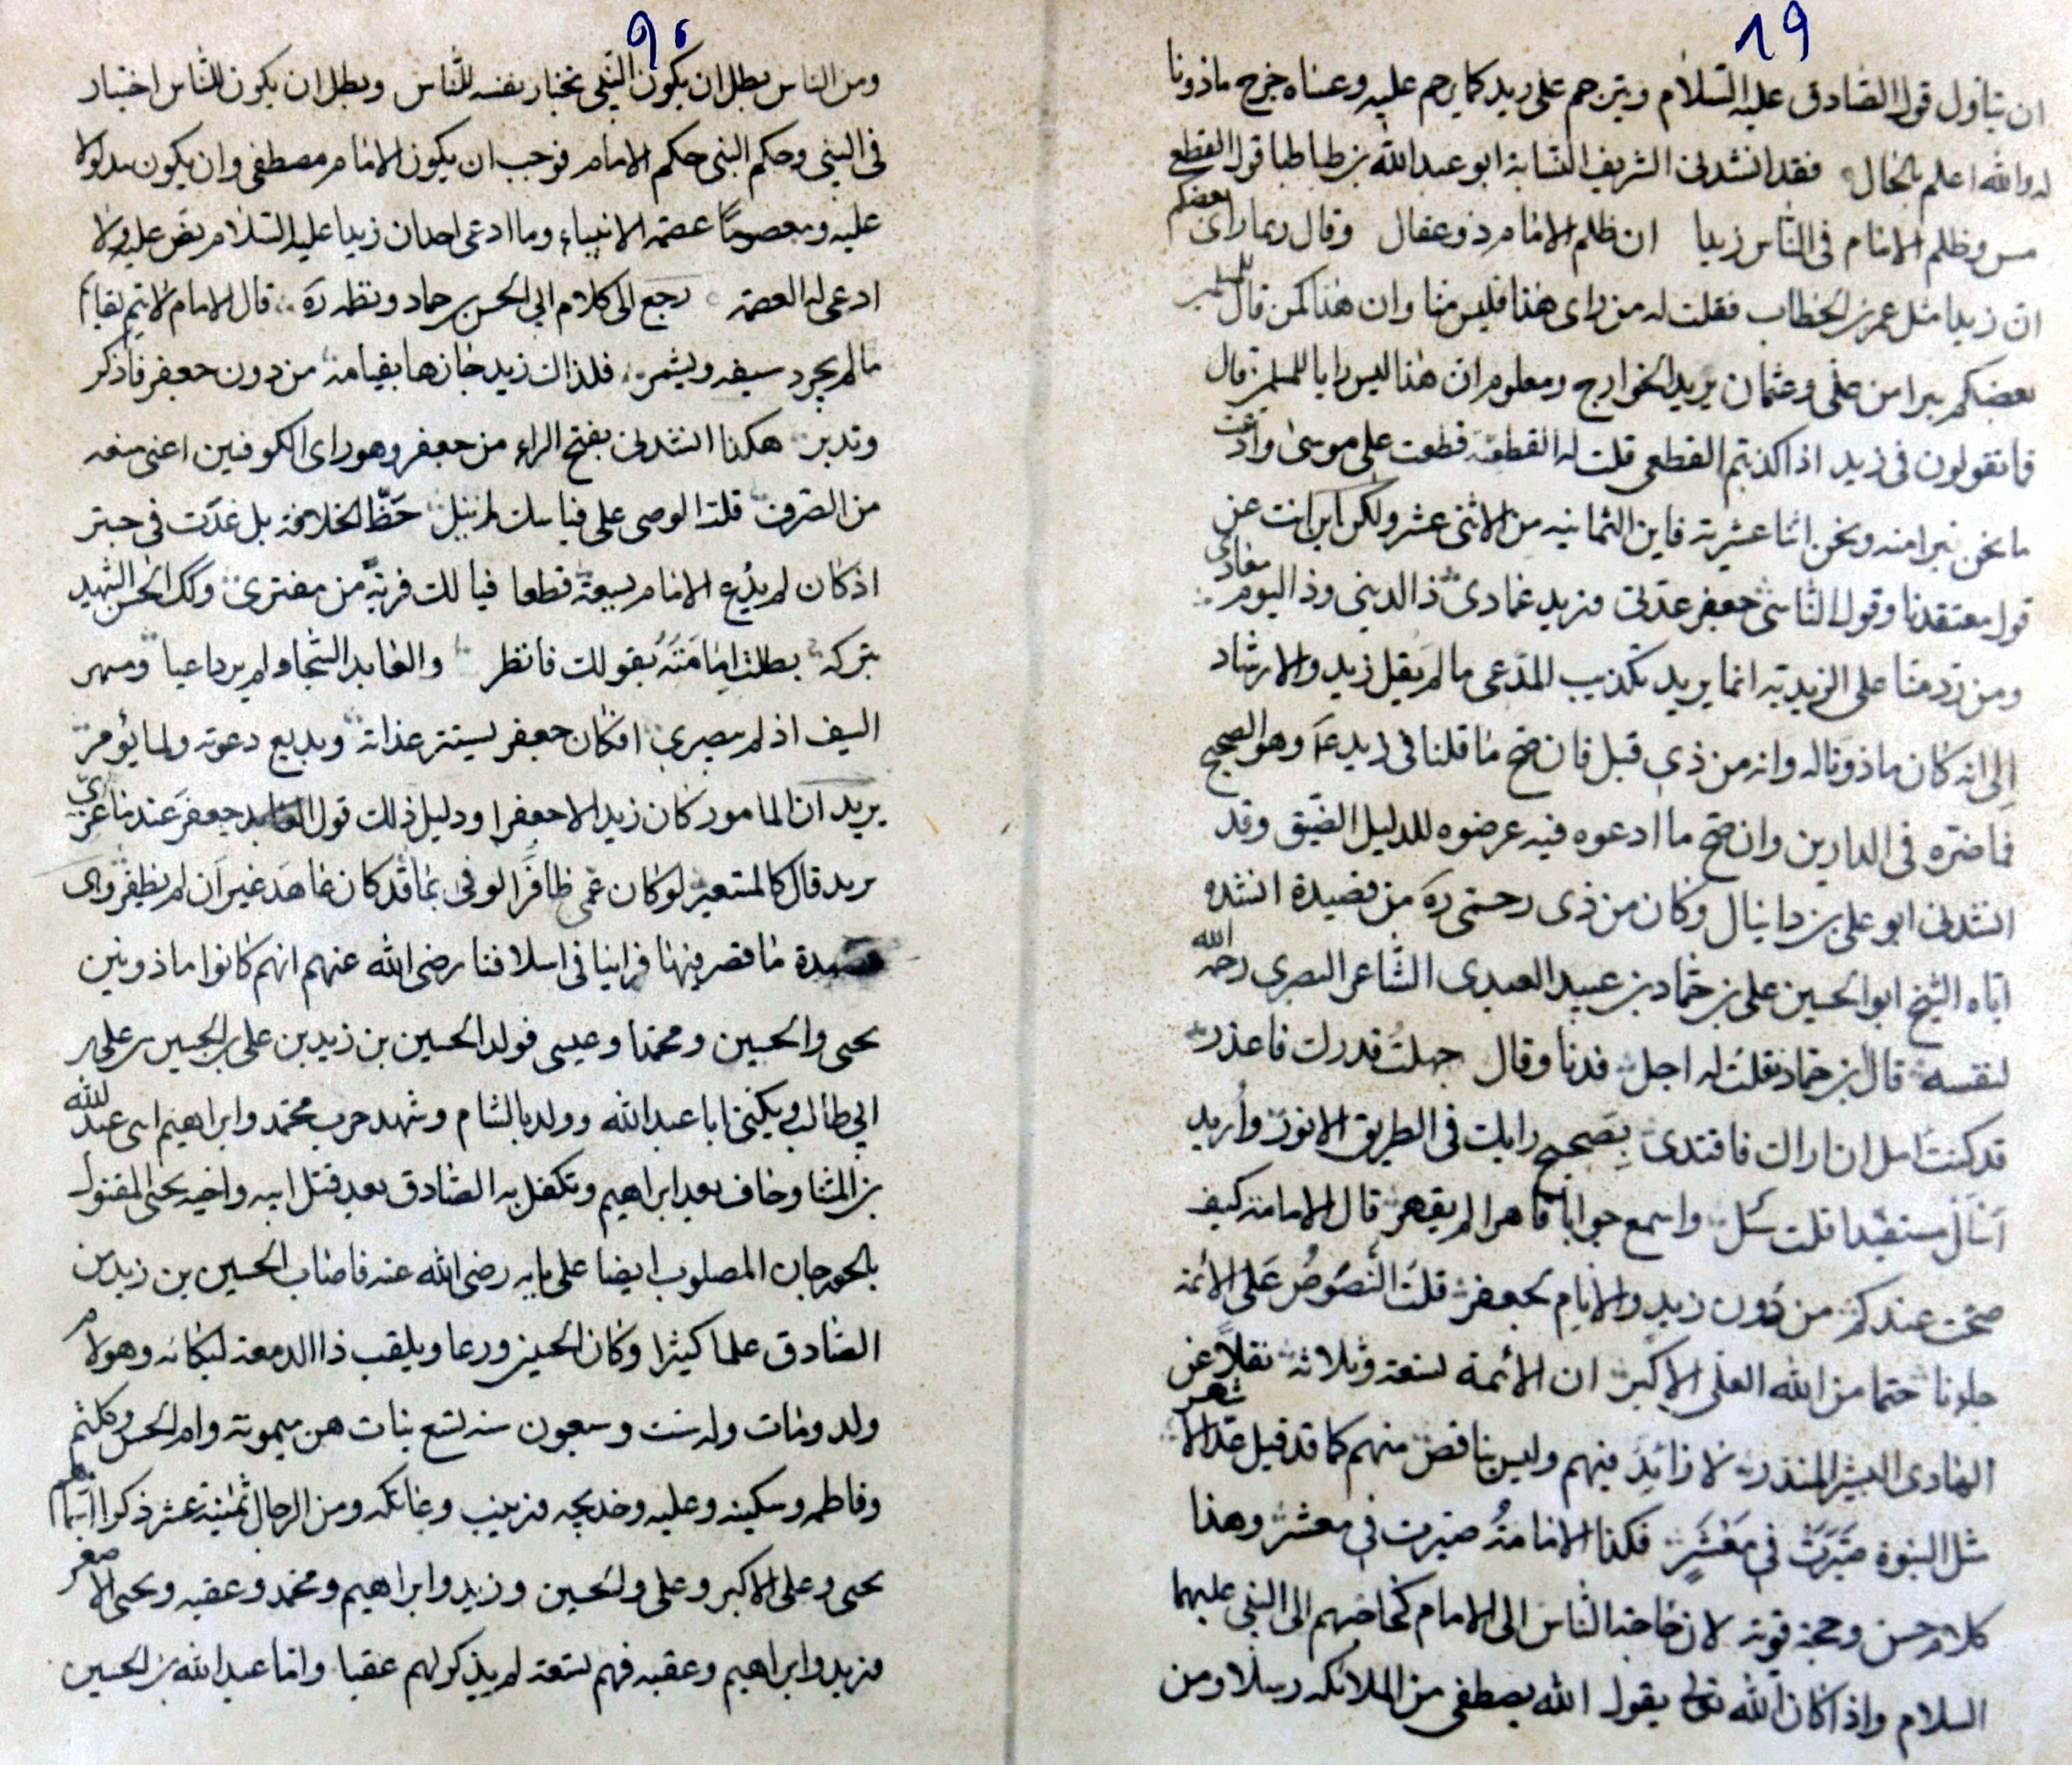 ٨٩
ان يتاول قول الصادق عليه السلام ويترحم على زيد كما يرحم عليه وعساه خرج ماذونا
له والله اعلم بالحال فقد انشدنى الشريف النسابة ابو عبد الله بن طباطبا قول القطع
مس وظلم الامام فى الناس زيدا ان ظلم الامام ذو عقال وقال ربما راى بعضكم
ان زيدا مثل عمر بن الخطاب فقلت له من راى هذا فليس منا وان هذا كمن قال للمسلمين
بعضكم يبرا من على وعثمان يريد الخوارج ومعلوم ان هذا ليس رايا للمسلمين قال
فما تقولون فى زيد اذا كذبتم القطعى قلت له القطعية قطعت على موسى وادعت
ما نحن نبرا منه ونحن اثنا عشرية فاين الثمانيه من الاثنى عشر ولكن اين انت عن
قول معتقدنا وقول الناشى جعفر عدتى وزيد عمادى ذا لدينى وذا اليوم معادى
ومن رد منا على الزيدية انما يريد تكذيب المدعى ما لم يقل زيد والارشاد
الى انه كان ماذونا له وانه من ذى قبل فان صح ما قلنا فى زيد عم وهو الصحيح
فما ضره فى الدارين وان صح ما ادعوه فيه عرضوه للدليل الضيق وقد
انشدنى ابو على بن دانيال وكان من ذى رحمى ره من قصيدة انشده
اياه الشيخ ابو الحسين على بن حماد بن عبيد العبدى الشاعر البصرى رحمه الله
لنفسه قال ابن حماد فقلت له اجل فدنا وقال جهلت قدرك فاعذر
قد كنت امل ان اراك فاقتدى بصحيح رايك فى الطريق الانور واريد
اسال مستفيدا قلت سل واسمع جوابا قاهرا لم يقهر قال الامامة كيف
صحت عندكم من دون زيد والانام لجعفر قلت النصوص على الائمة
جاءنا حتما من الله العلى الاكبر ان الائمة تسعة وثلاثة نقلا عن
الهادى البشير المنذر لا زائد فيهم وليس بناقص منهم كما قد قيل عد الاشهر
مثل النبوة صيرت فى معشر فكذا الامامة صيرت فى معشر وهذا
كلام حسن وحجة قوية لان حاجة الناس الى الامام كحاجتهم الى النبى عليهما
السلام واذا كان الله تعالى يقول الله يصطفى من الملائكه رسلا ومن
٩٠
ومن الناس بطل ان يكون النبى يختار نفسه للناس وبطل ان يكون للناس اختيار
فى النبى وحكم النبى حكم الامام فوجب ان يكون الامام مصطفى وان يكون مدلولا
عليه ومعصوما عصمة الانبياء وما ادعى احد ان زيدا عليه السلام نص عليه ولا
ادعى له العصمة رجع الى كلام ابى الحسن بن حماد ونظمه ره قال الامام لا يتم لقائم
ما لم يجرد سيفه ويشمر فلذاك زيد حازها بقيامه من دون جعفر فاذكر
وتدبر هكذا انشدنى بفتح الراء من جعفر وهو راى الكوفيين اعنى منعه
من الصرف قلت الوصى على قياسك لم ينل حظ الخلافة بل غدت فى حبتر
اذ كان لم يدع الامام بسيعة قطعا فيا لك فرية من مفترى وكك الحسن الشهيد
بتركه بطلت امامته بقولك فانظر والعابد السجاد لم ير داعيا ومشهر
السيف اذ لم ينصرى افكان جعفر يستتر عداته ويذيع دعوته ولما يؤمر
يريد ان المامور كان زيدا لا جعفرا ودليل ذلك قول جعفر عندما عزى
بزيد قال كالمستعبر لو كان عمى ظافرا لوفى بما قد كان عاهد غير ان لم يظفر وهى
قصيدة ما قصر فيها فراينا فى اسلافنا رضى الله عنهم انهم كانوا ماذونين
يحيى والحسين ومحمدا وعيسى فولد الحسين بن زيد بن على بن الحسين بن على بن
ابى طالب ويكنى ابا عبد الله وولد بالشام وشهد حرب محمد وابراهيم ابنى عبد الله
بن المثنا وخاف بعد ابراهيم وتكفل به الصادق بعد قتل ابيه واخيه يحيى المقتول
بالجوزجان المصلوب ايضا على بابه رضى الله عنه فاصاب الحسين بن زيد من
الصادق علما كثيرا وكان الحسين ورعا ويلقب ذا الدمعة لبكائه وهولاء
ولده ومات وله ست وسبعون سنه تسع بنات هن ميمونة وام الحسن وكلثم
وفاطمه وسكينه وعليه وخديجه وزينب وعاتكه ومن الرجال ثمنية عشر ذكرا اسماهم
يحيى وعلى الاكبر وعلى والحسين وزيد وابراهيم ومحمد وعقبه ويحيى الاصغر
وزيد وابراهيم وعقبه فهم تسعة لم يذكر لهم عقبا واما عبد الله بن الحسين